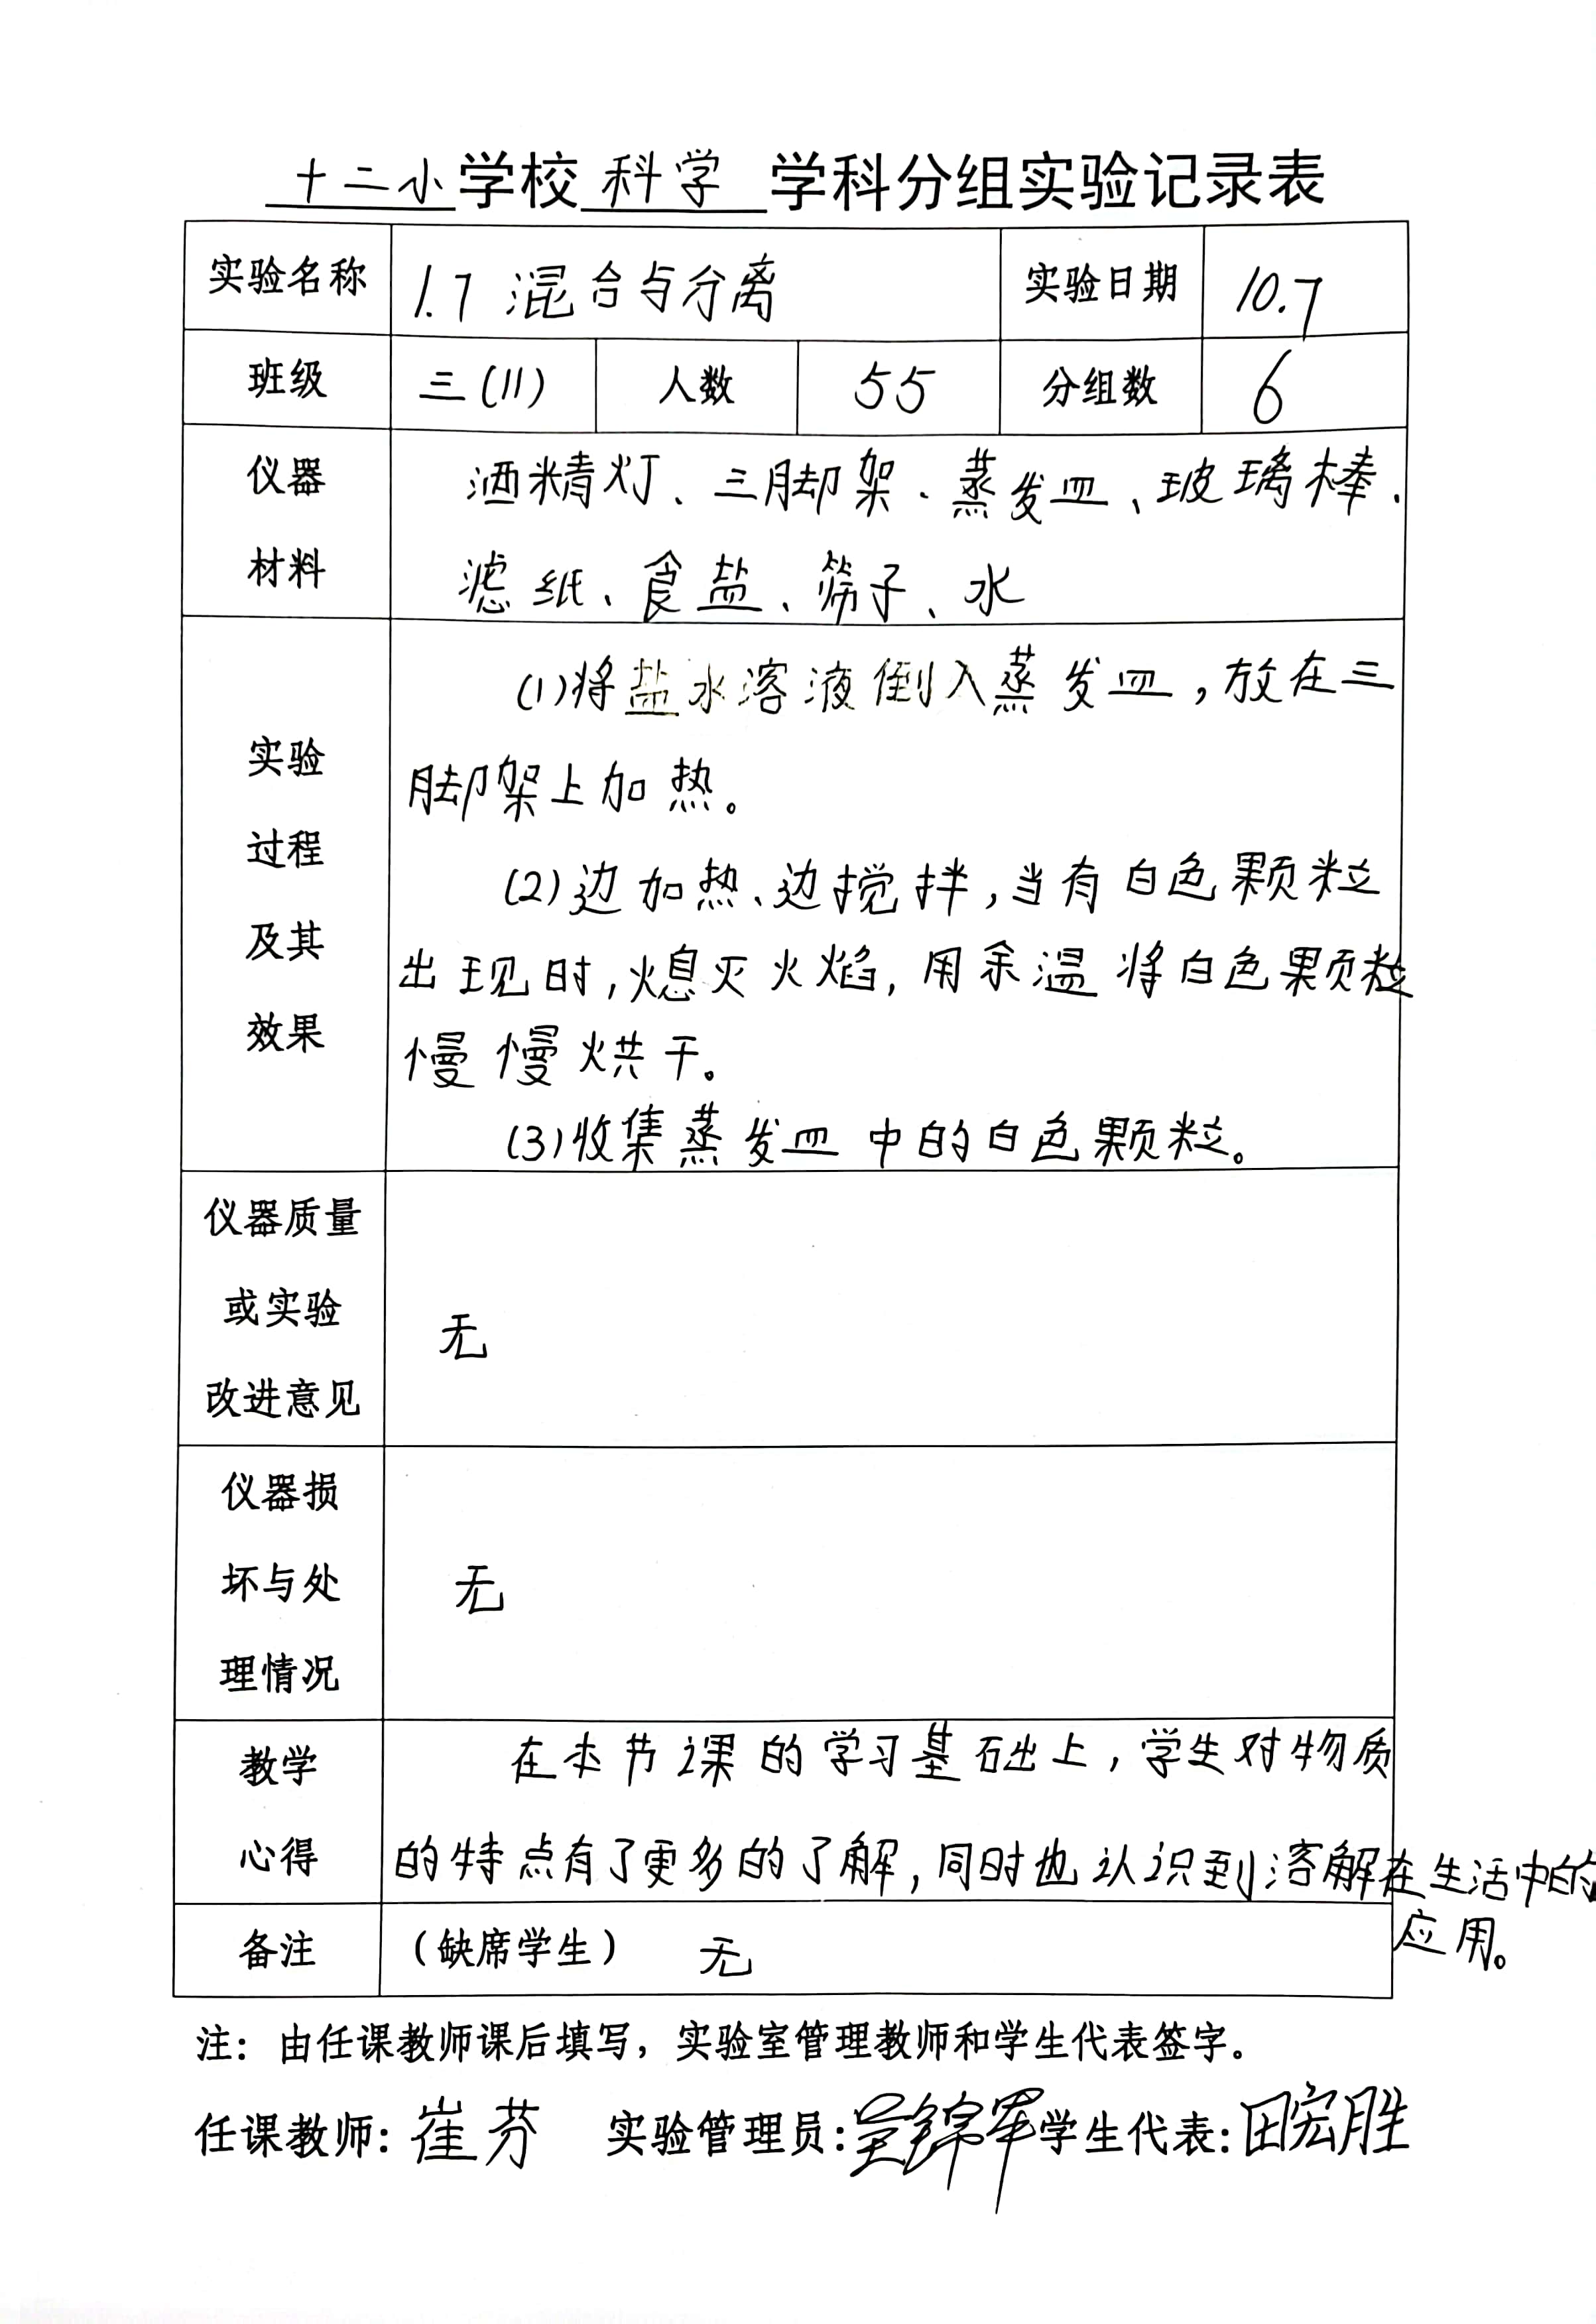 十二小学校科学学科分组实验记录表
实验名称 1.7 混合与分离 实验日期 10.7
班级 三(11) 人数 55 分组数 6
仪器 酒精灯、三脚架、蒸发皿、玻璃棒、
材料 滤纸、食盐、筛子、水
(1)将盐水溶液倒入蒸发皿,放在三
实验
脚架上加热。
过程
(2)边加热、边搅拌,当有白色颗粒
及其
出现时,熄灭火焰,用余温将白色颗粒
效果
慢慢烘干。
(3)收集蒸发皿中的白色颗粒。
仪器质量
或实验
无
改进意见
仪器损
坏与处
无
理情况
教学 在本节课的学习基础上,学生对物质
心得 的特点有了更多的了解,同时也认识到溶解在生活中的
应用。
备注 (缺席学生) 无
注:由任课教师课后填写,实验室管理教师和学生代表签字。
任课教师:崔芬 实验管理员: 学生代表:田宏胜